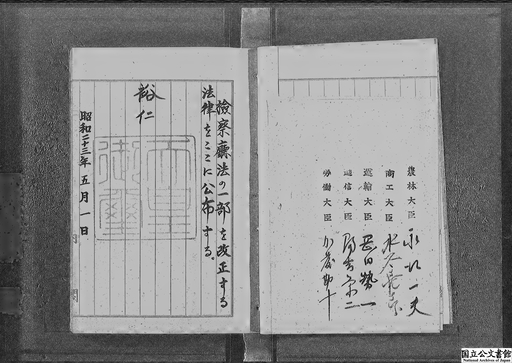 農林大臣 永江一夫
商工大臣 水谷長三郎
運輸大臣 岡田勢一
遞信大臣 冨吉榮二
勞働大臣 加藤勘十
檢察廳法の一部を改正する
法律をここに公布する。
裕仁
天皇御璽
昭和二十三年五月一日
国立公文書館
National Archives of Japan